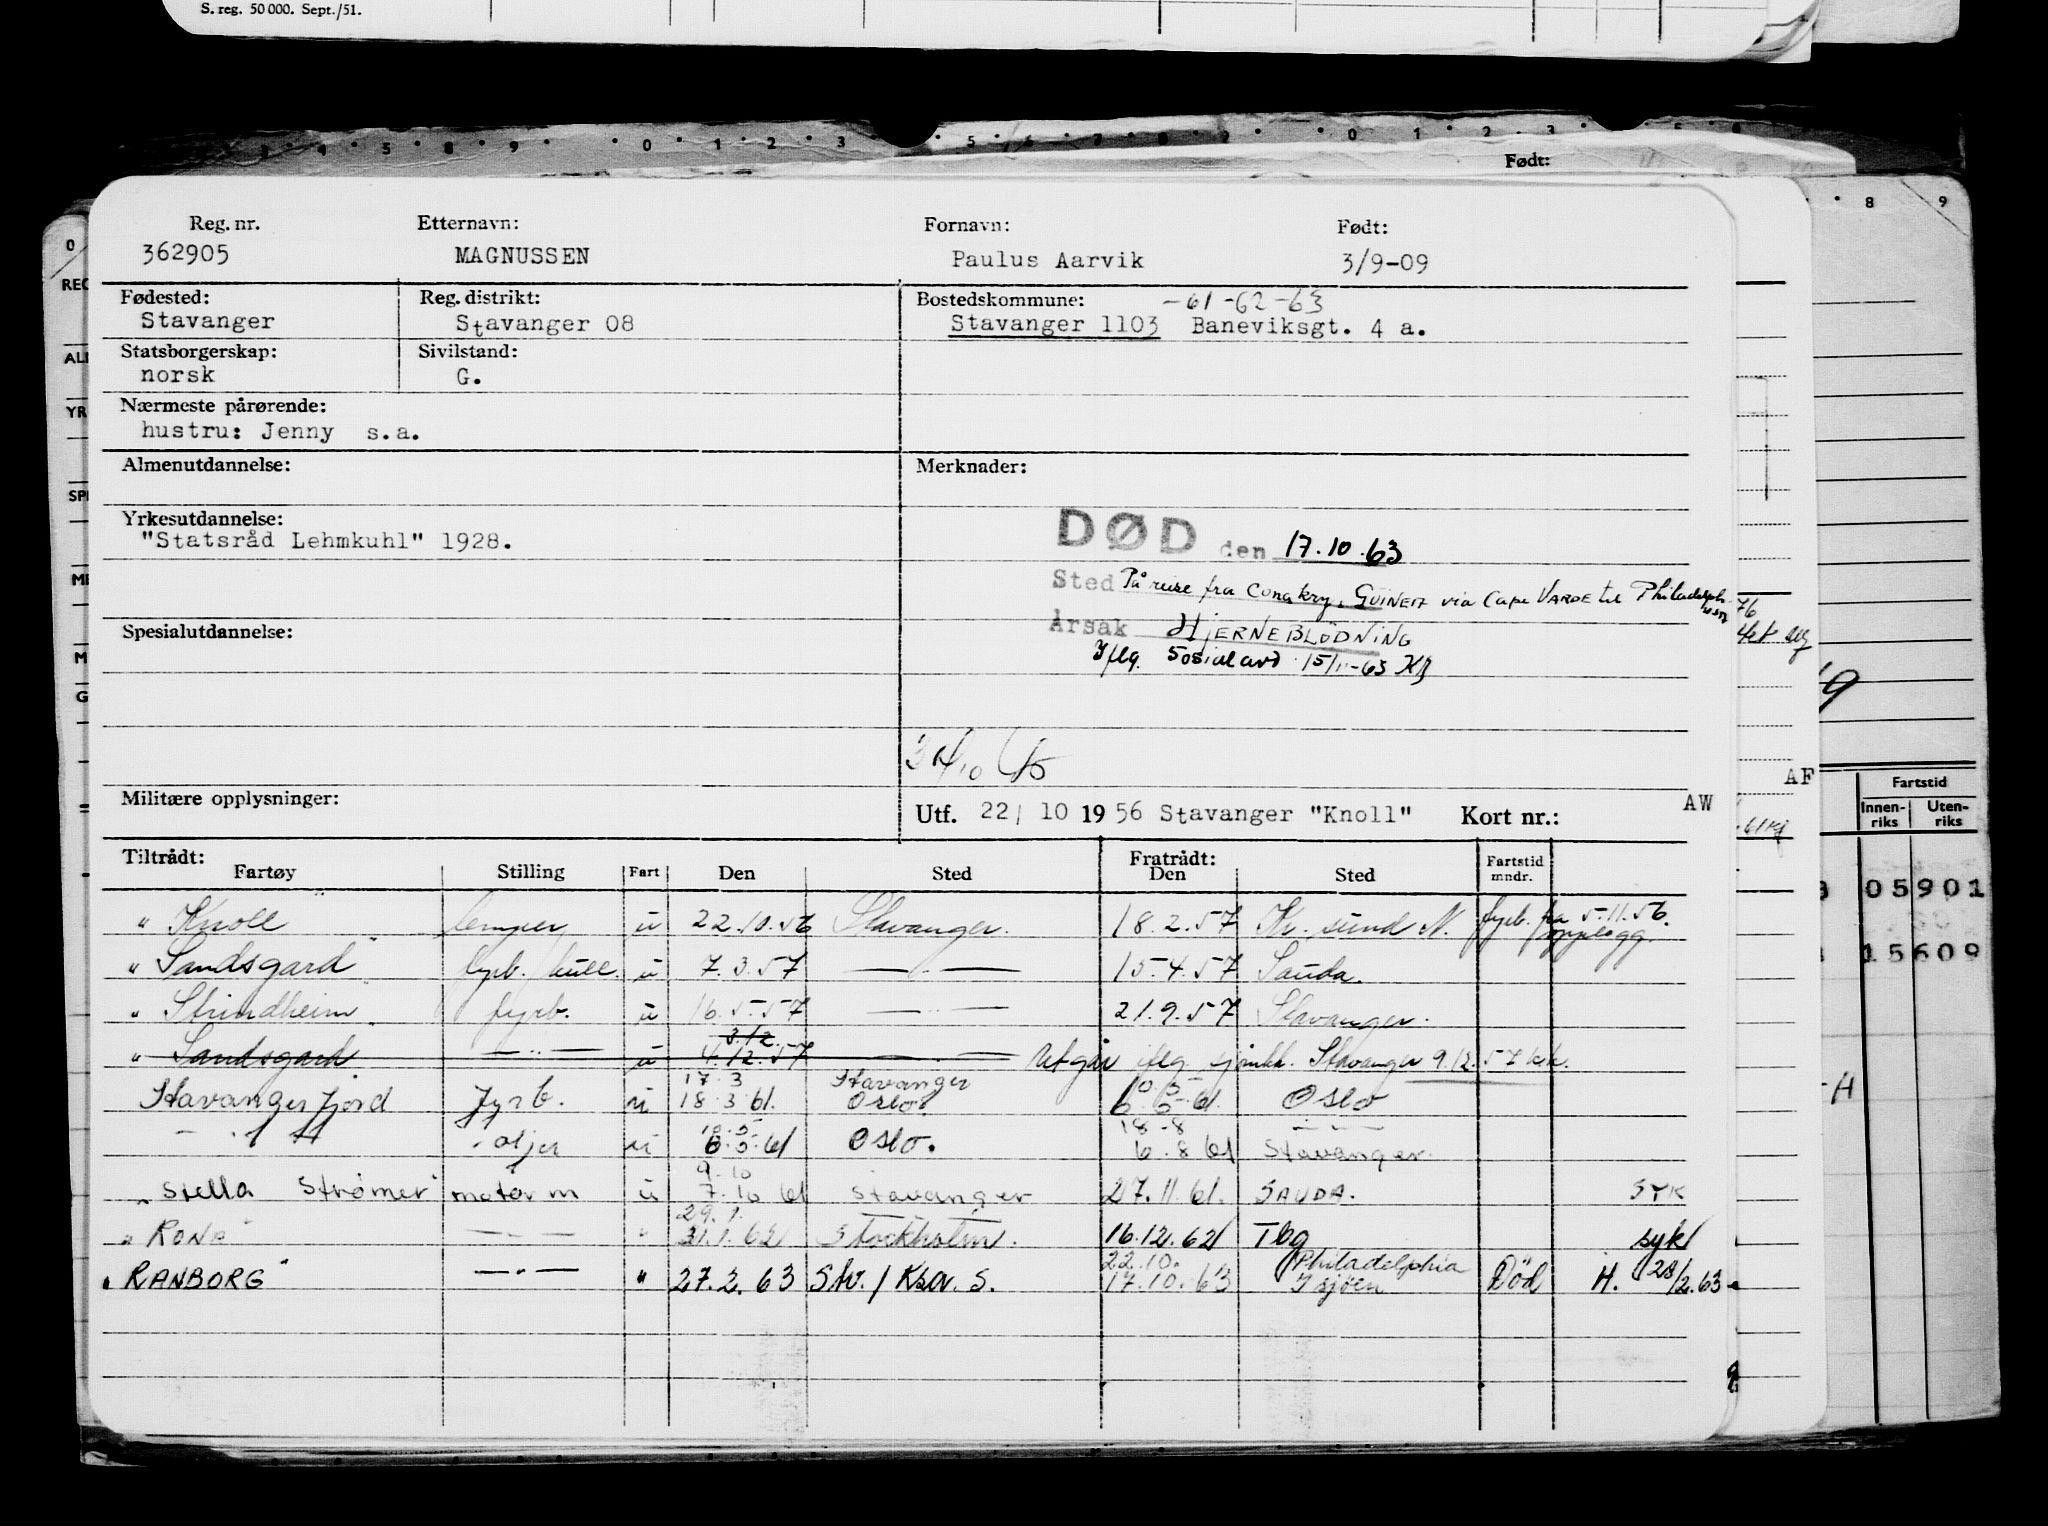 S. reg. 50 000. Sept./51.
Født:
Reg. nr. Etternavn: Fornavn: Født:
362905 MAGNUSSEN Paulus Aarvik 3/9-09
Fødested: Reg. distrikt: Bostedskommune: -61-62-63
Stavanger Stavanger 08 Stavanger 1103 Baneviksgt. 4 a.
Statsborgerskap: Sivilstand:
norsk G.
Nærmeste pårørende:
hustru: Jenny s.a.
Almenutdannelse: Merknader:
Yrkesutdannelse:
"Statsråd Lehmkuhl" 1928.
DØD den 17.10.63
Sted På reise fra Conakry, GUINEA via Cape VARDE til Philadelph
Spesialutdannelse:
Årsak HJERNEBLÖDNING
Iflg. Sosialavd 15/11-63 KB
Militære opplysninger:
Utf. 22/ 10 19 56 Stavanger "Knoll" Kort nr.: AW
AF
Fartstid
Innen-riks Uten-riks
05901
15609
H
Tiltrådt: Fratrådt: Fartstid
Fartøy Stilling Fart Den Sted Den Sted mndr.
"Knoll" lemper u 22.10.56 Stavanger. 18.2.57 Kr. sund N. fyrb. fra 5.11.56. opplogg.
"Sandsgard" fyrb. kull. u 7.3.57 —"— 15.4.57 Sauda.
"Strindheim" fyrb. u 16.5.57 —"— 21.9.57 Stavanger.
3/12
"Sandsgard —"— u 4.12.57 —"— Utgår iflg. sjømkt. Stavanger 9.12.57 kk.
17.3 Stavanger 10.5
Stavangerfjord Fyrb. u 18.3.61. Oslo. 6.5.61. Oslo
10.5 18-8 —"—
—"— oljer u 6.5.61 Oslo. 6.8.61 Stavanger.
9.10
"Stella Strømer" motorm u 7.10 61 Stavanger 27.11.61. SAUDA. SYK
29.1.
"RONA" —"— " 31.1.62 Stockholm. 16.12.62 Tbg syk
22.10. Philadelphia
"RANBORG" —"— " 27.2.63 Stv. / Krsa. S. 17.10.63 I sjøen Död H. 28/2.63